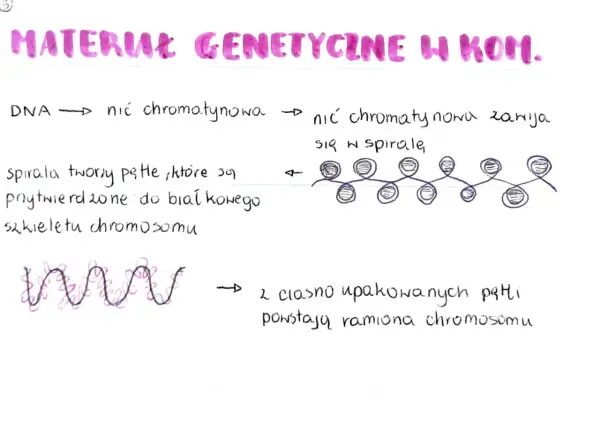 3
MATERIAŁ GENETYCZNE W KOM.
DNA → nić chromatynowa → nić chromatynowa zawija
się w spiralę
←
spirala tworzy pętle, które są
przytwierdzone do białkowego
szkieletu chromosomu
→ z ciasno upakowanych pętli
powstają ramiona chromosomu